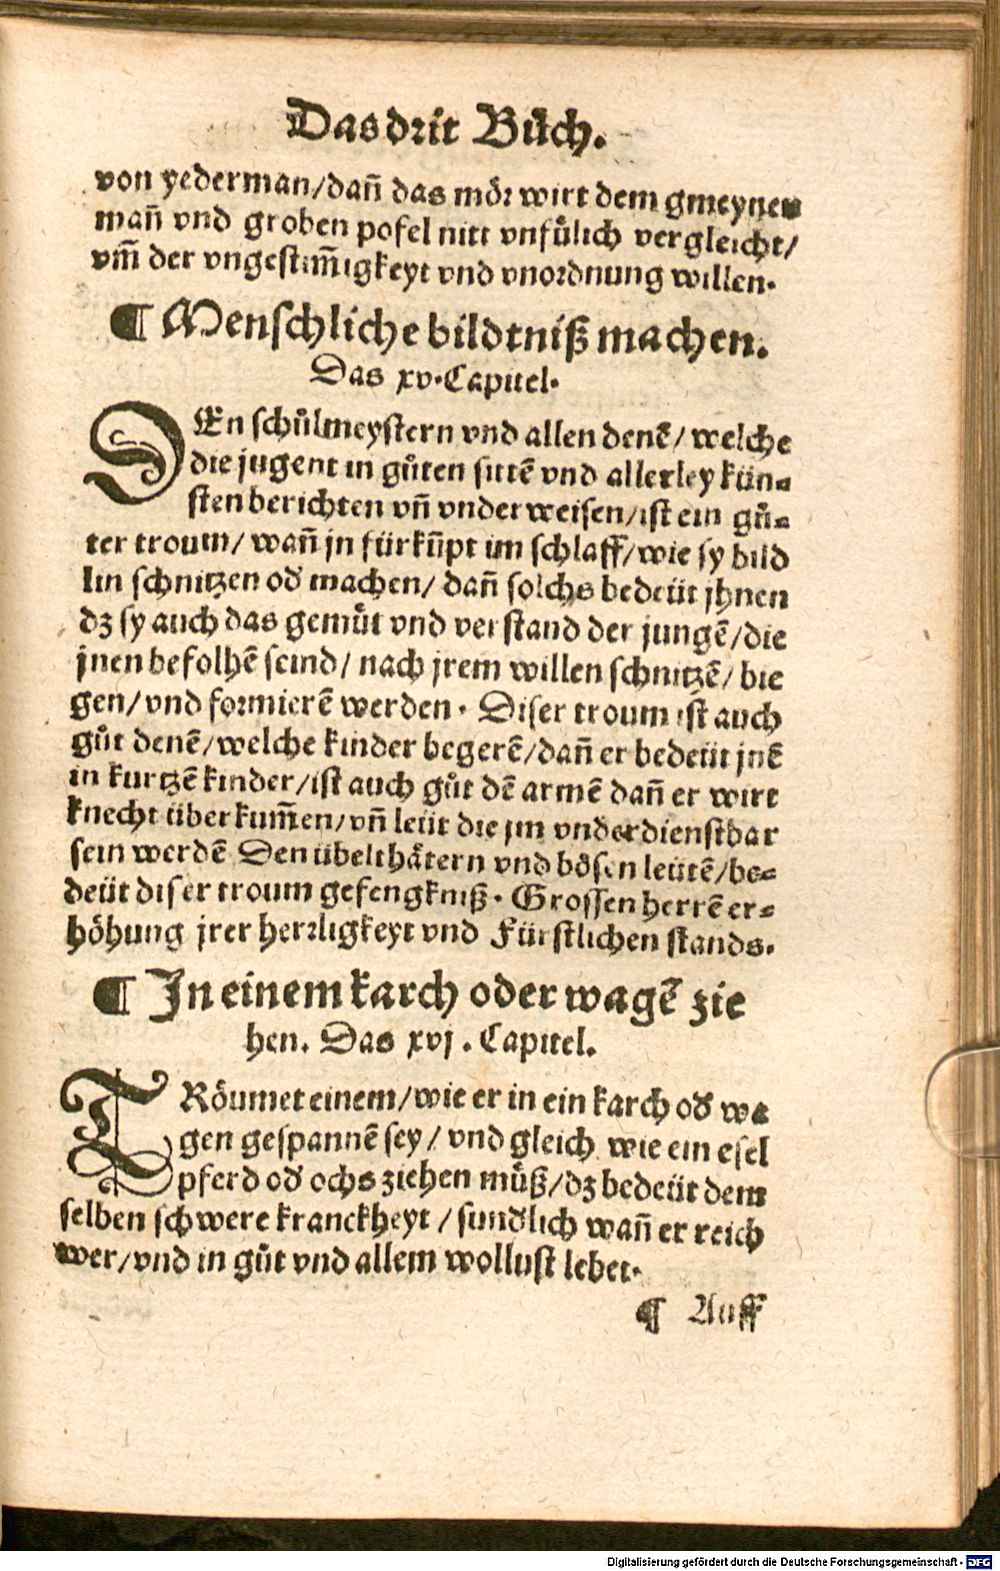 Das drit Bůch.
von yederman/dañ das moͤr wirt dem gmeynen
mañ vnd groben pofel nitt vnfuͤlich vergleicht/
vm̃ der vngestim̃igkeyt vnd vnordnung willen.
¶ Menschliche bildtniß machen.
Das xv. Capitel.
DEn schůlmeystern vnd allen denẽ/ welche
die jugent in gůten sittẽ vnd allerley kün-
sten berichten vñ vnderweisen/ist ein gů-
ter troum/ wañ jn fürkũpt im schlaff/wie sy bild
lin schnitzen oď machen/ dañ solchs bedeüt jhnen
dz sy auch das gemuͤt vnd verstand der jungẽ/die
jnen befolhẽ seind/ nach jrem willen schnitzẽ/ bie
gen/ vnd formierẽ werden. Diser troum ist auch
gůt denẽ/welche kinder begerẽ/dañ er bedeüt jnẽ
in kurtzẽ kinder/ist auch gůt dẽ armẽ dañ er wirt
knecht überkum̃en/vñ leüt die jm vnderdienstbar
sein werdẽ Den übelthaͤtern vnd boͤsen leütẽ/be-
deüt diser troum gefengkniß. Grossen herrẽ er-
hoͤhung jrer herrligkeyt vnd Fürstlichen stands.
¶ In einem karch oder wagẽ zie
hen. Das xvj. Capitel.
TRoͤumet einem/wie er in ein karch oď wa
gen gespannẽ sey/ vnd gleich wie ein esel
pferd oď ochs ziehen muͤß/dz bedeüt dem
selben schwere kranckheyt/ sunďlich wañ er reich
wer/vnd in gůt vnd allem wollust lebet.
¶ Auff
Digitalisierung gefördert durch die Deutsche Forschungsgemeinschaft - DFG